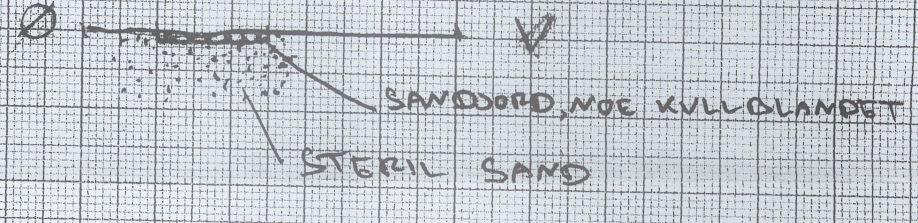 Ø V
SANDJORD, NOE KULLBLANDET
STERIL SAND